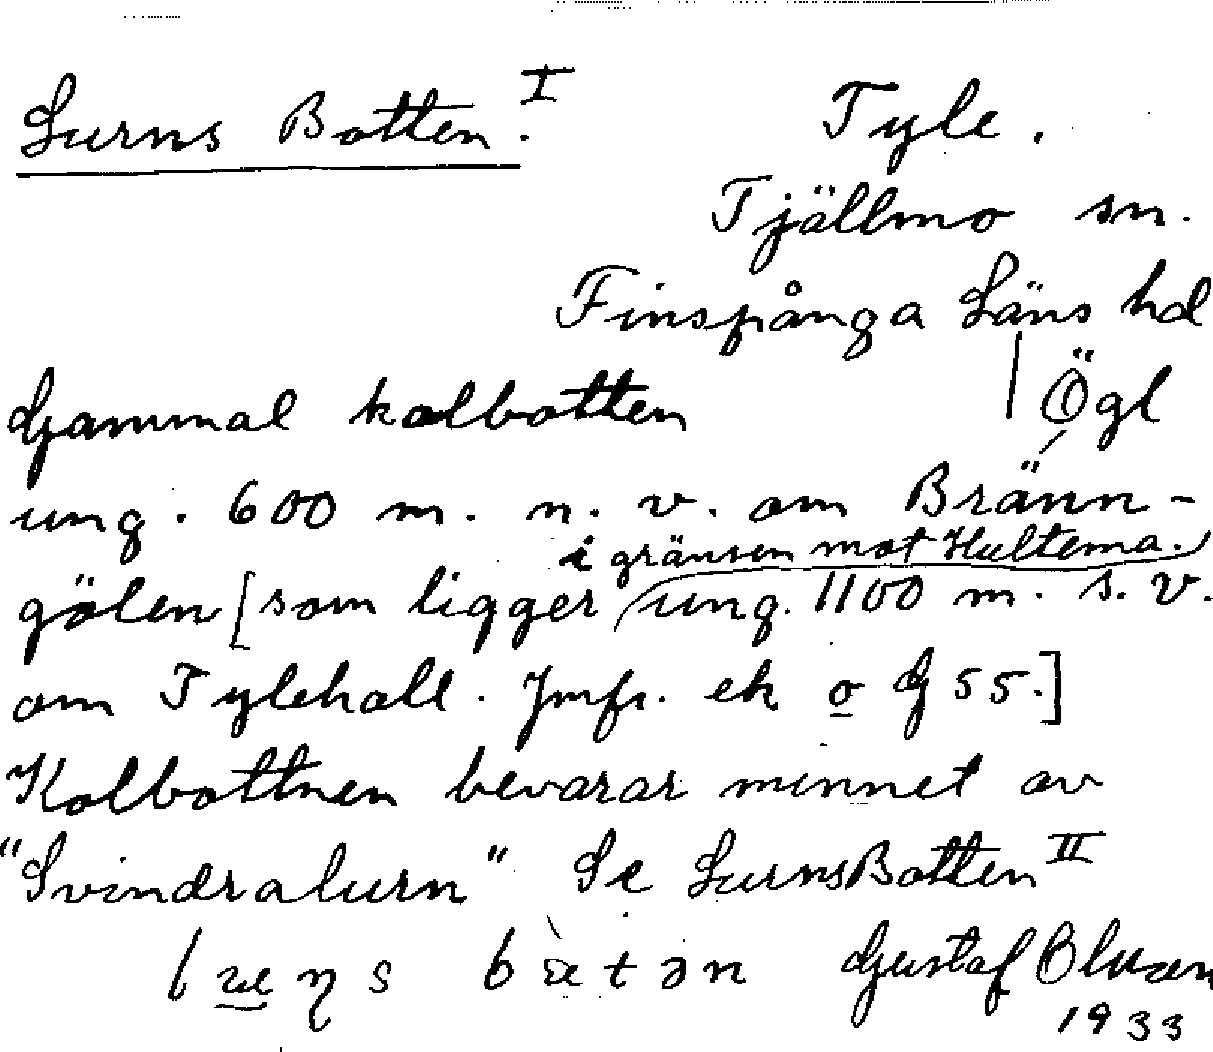 Lurns Botten. I
Tyle.
Tjällmo sn.
Finspånga Läns hd
Gammal kolbotten | Ögl
ung. 600 m. n. v. om Bränn-
i gränsen mot Hultema.
gölen [som ligger ung. 1100 m. s. v.
om Tylehall. Jmfr. ek o G 55.]
Kolbottnen bevarar minnet av
"Svindralurn" Se LurnsBotten II
Gustaf
1933